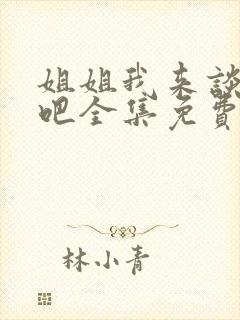 姐姐我来談
吧全集免費
林小青